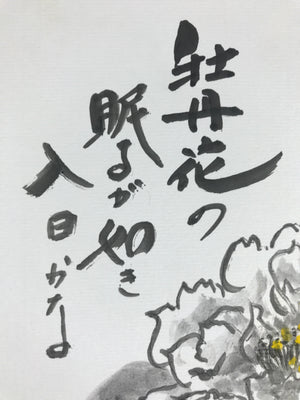 牡丹花の
眠るが如き
入日かな